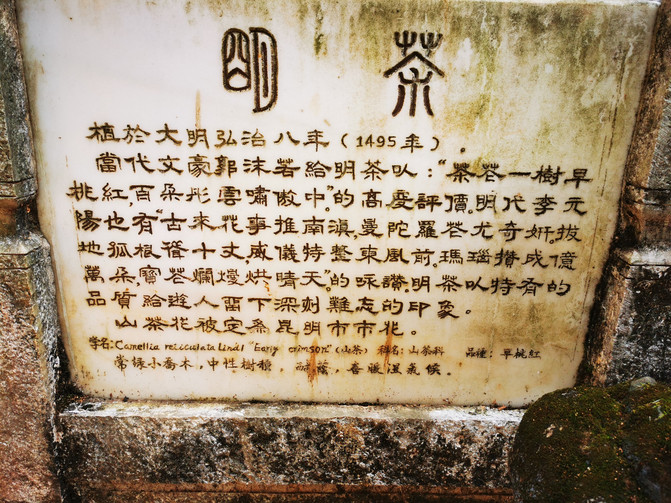 明茶
植於大明弘治八年(1495年)。
當代文豪郭沫若給明茶以:"茶花一樹早
桃紅,百朵彤雲嘯傲中"的高度評價。明代李元
陽也有"古來花事推南滇,曼陀羅花尤奇妍。拔
地孤根聳十丈,威儀特整東風前。瑪瑙攢成億
萬朵,寶花爛熳烘晴天"的咏讚。明茶以特有的
品質給遊人留下深刻難忘的印象。
山茶花被定為昆明市市花。
学名:Camellia reicculata Linal "Early crimson"(山茶) 科名:山茶科 品種:早桃紅
常绿小喬木,中性樹種,耐蔭,喜暖湿氣候。